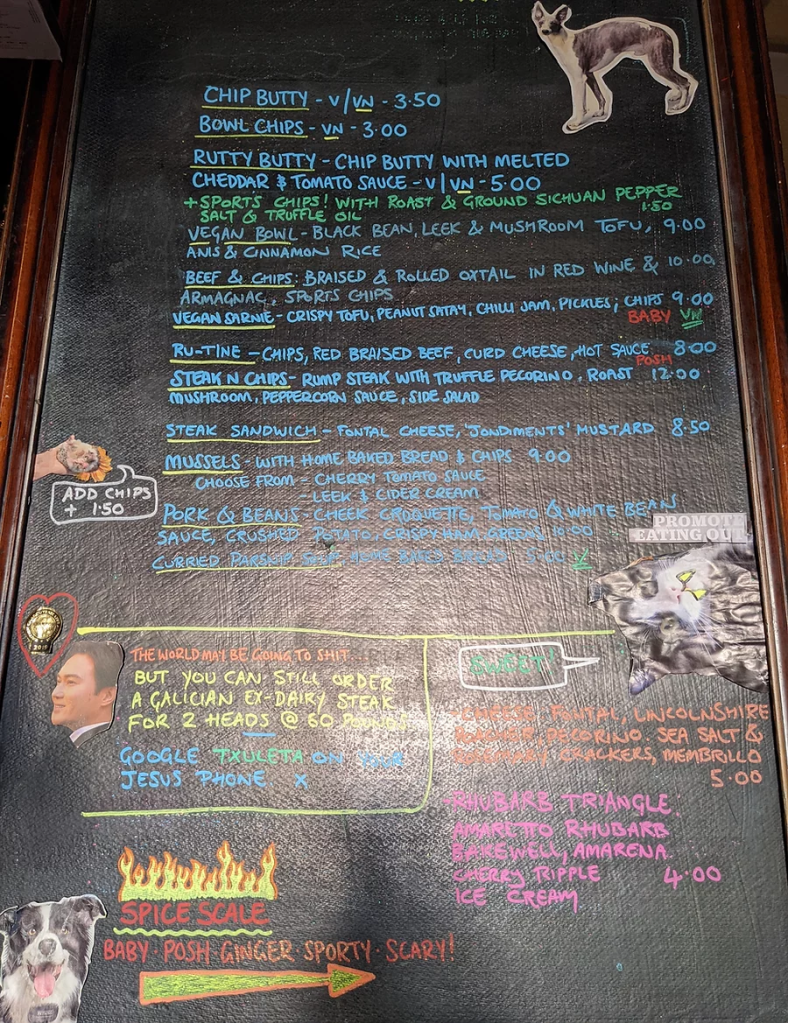 CHIP BUTTY - V/VN - 3.50
BOWL CHIPS - VN - 3.00
RUTTY BUTTY - CHIP BUTTY WITH MELTED
CHEDDAR & TOMATO SAUCE - V/VN - 5.00
+ SPORTS CHIPS! WITH ROAST & GROUND SICHUAN PEPPER
SALT & TRUFFLE OIL 1.50
VEGAN BOWL - BLACK BEAN, LEEK & MUSHROOM TOFU, 9.00
ANIS & CINNAMON RICE
BEEF & CHIPS: BRAISED & ROLLED OXTAIL IN RED WINE & 10.00
ARMAGNAC, SPORTS CHIPS
VEGAN SARNIE - CRISPY TOFU, PEANUT SATAY, CHILLI JAM, PICKLES, CHIPS 9.00
BABY VN
RU-TINE - CHIPS, RED BRAISED BEEF, CURD CHEESE, HOT SAUCE 8.00
POSH
STEAK N CHIPS - RUMP STEAK WITH TRUFFLE PECORINO, ROAST 12.00
MUSHROOM, PEPPERCORN SAUCE, SIDE SALAD
STEAK SANDWICH - FONTAL CHEESE, 'JONDIMENTS' MUSTARD 8.50
MUSSELS - WITH HOME BAKED BREAD & CHIPS 9.00
CHOOSE FROM - CHERRY TOMATO SAUCE
- LEEK & CIDER CREAM
ADD CHIPS
+ 1.50
PORK & BEANS - CHEEK CROQUETTE, TOMATO & WHITE BEAN
SAUCE, CRUSHED POTATO, CRISPY HAM, GREENS 10.00
CURRIED PARSNIP SOUP HOME BAKED 5.00 V
PROMOT
EATING OU
THE WORLD MAY BE GOING TO SHIT...
BUT YOU CAN STILL ORDER
A GALICIAN EX-DAIRY STEAK
FOR 2 HEADS @ 60 POUNDS
GOOGLE TXULETA ON YOUR
JESUS PHONE X
SWEET!
- CHEESE: FONTAL, LINCOLNSHIRE
POACHER, PECORINO, SEA SALT &
ROSEMARY CRACKERS, MEMBRILLO
5.00
- RHUBARB TRIANGLE:
AMARETTO RHUBARB
BAKEWELL, AMARENA
CHERRY RIPPLE 4.00
ICE CREAM
SPICE SCALE
BABY · POSH · GINGER · SPORTY · SCARY!